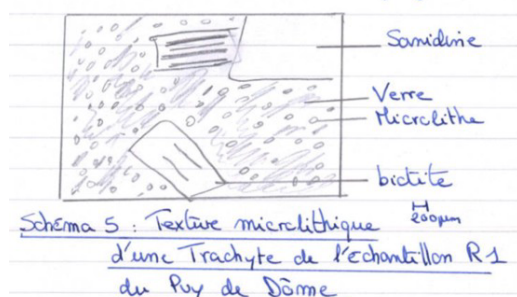 Sanidine
Verre
Microlithe
biotite
200µm
Schéma 5 : Texture microlithique
d'une Trachyte de l'echantillon R1
du Puy de Dôme